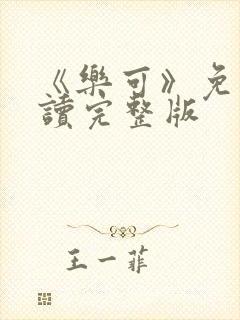 《樂可》免
讀完整版
王一菲